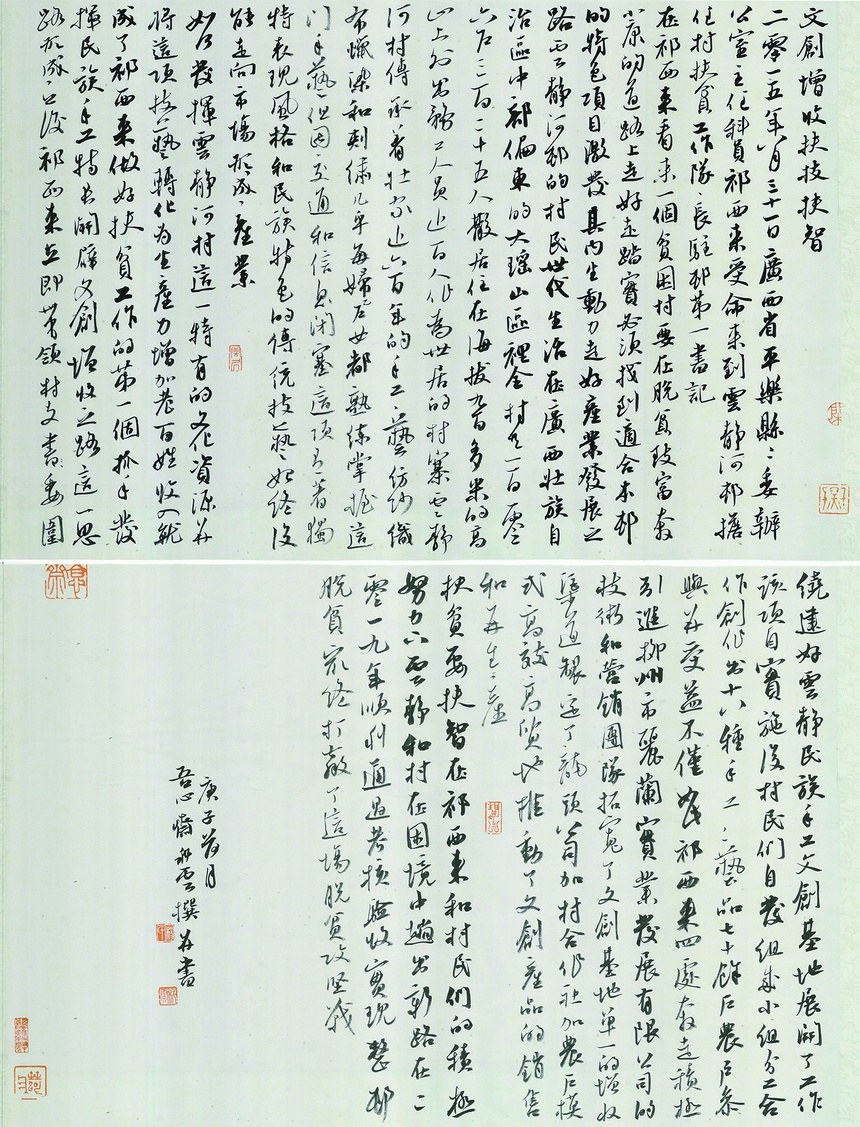 文創增收扶技扶智
二零一五年八月三十一日廣西省平樂縣縣委辦
公室主任科員祁西來受命來到雲静河邨擔
任村扶貧工作隊長駐邨第一書記
在祁西來看來一個貧困村要在脱貧致富奔
小康的道路上走好走踏實必須找到適合本邨
的特色項目激發其内生動力走好產業發展之
路雲静河邨的村民世代生活在廣西壯族自
治區中部偏東的大瑶山區裡全村一百零
六户三百二十五人散居住在海拔九百多米的高
山上外出務工人員近百人作為世居的村寨雲静
河村傳承着壯家近六百年的手工藝紡紗織
布蠟染和刺綉几乎每婦老女都熟練掌握這
门手藝但因交通和信息闭塞這項有着獨
特表現風格和民族特色的傳统技藝始终没
能走向市場形成產業
如何發揮雲静河村這一特有的文化資源并
將這項技藝轉化为生產力增加老百姓收入就
成了祁西來做好扶貧工作的第一個抓手發
揮民族手工特长開闢文創增收之路這一思
路形成之後祁西來立即带領村支書委圍
繞建好雲静民族手工文創基地展開了工作
該項目實施後村民们自發组成小组分工合
作創作出十八種手工工藝品七十餘户農户参
與并受益不僅如此祁西來四處奔走積極
引進柳州市麗蘭實業發展有限公司的
技術和营銷團隊拓寬了文創基地單一的增收
渠道缔造了龍頭公司加村合作社加農户模
式高效高質地推動了文創產品的銷售
和再生產
扶貧要扶智在祁西來和村民們的積極
努力下雲静和村在困境中趟出新路在二
零一九年順利通過考核驗收實現整邨
脱貧最终打赢了這場脱貧攻坚戰
庚子荷月
吾心齋 雲撰并書